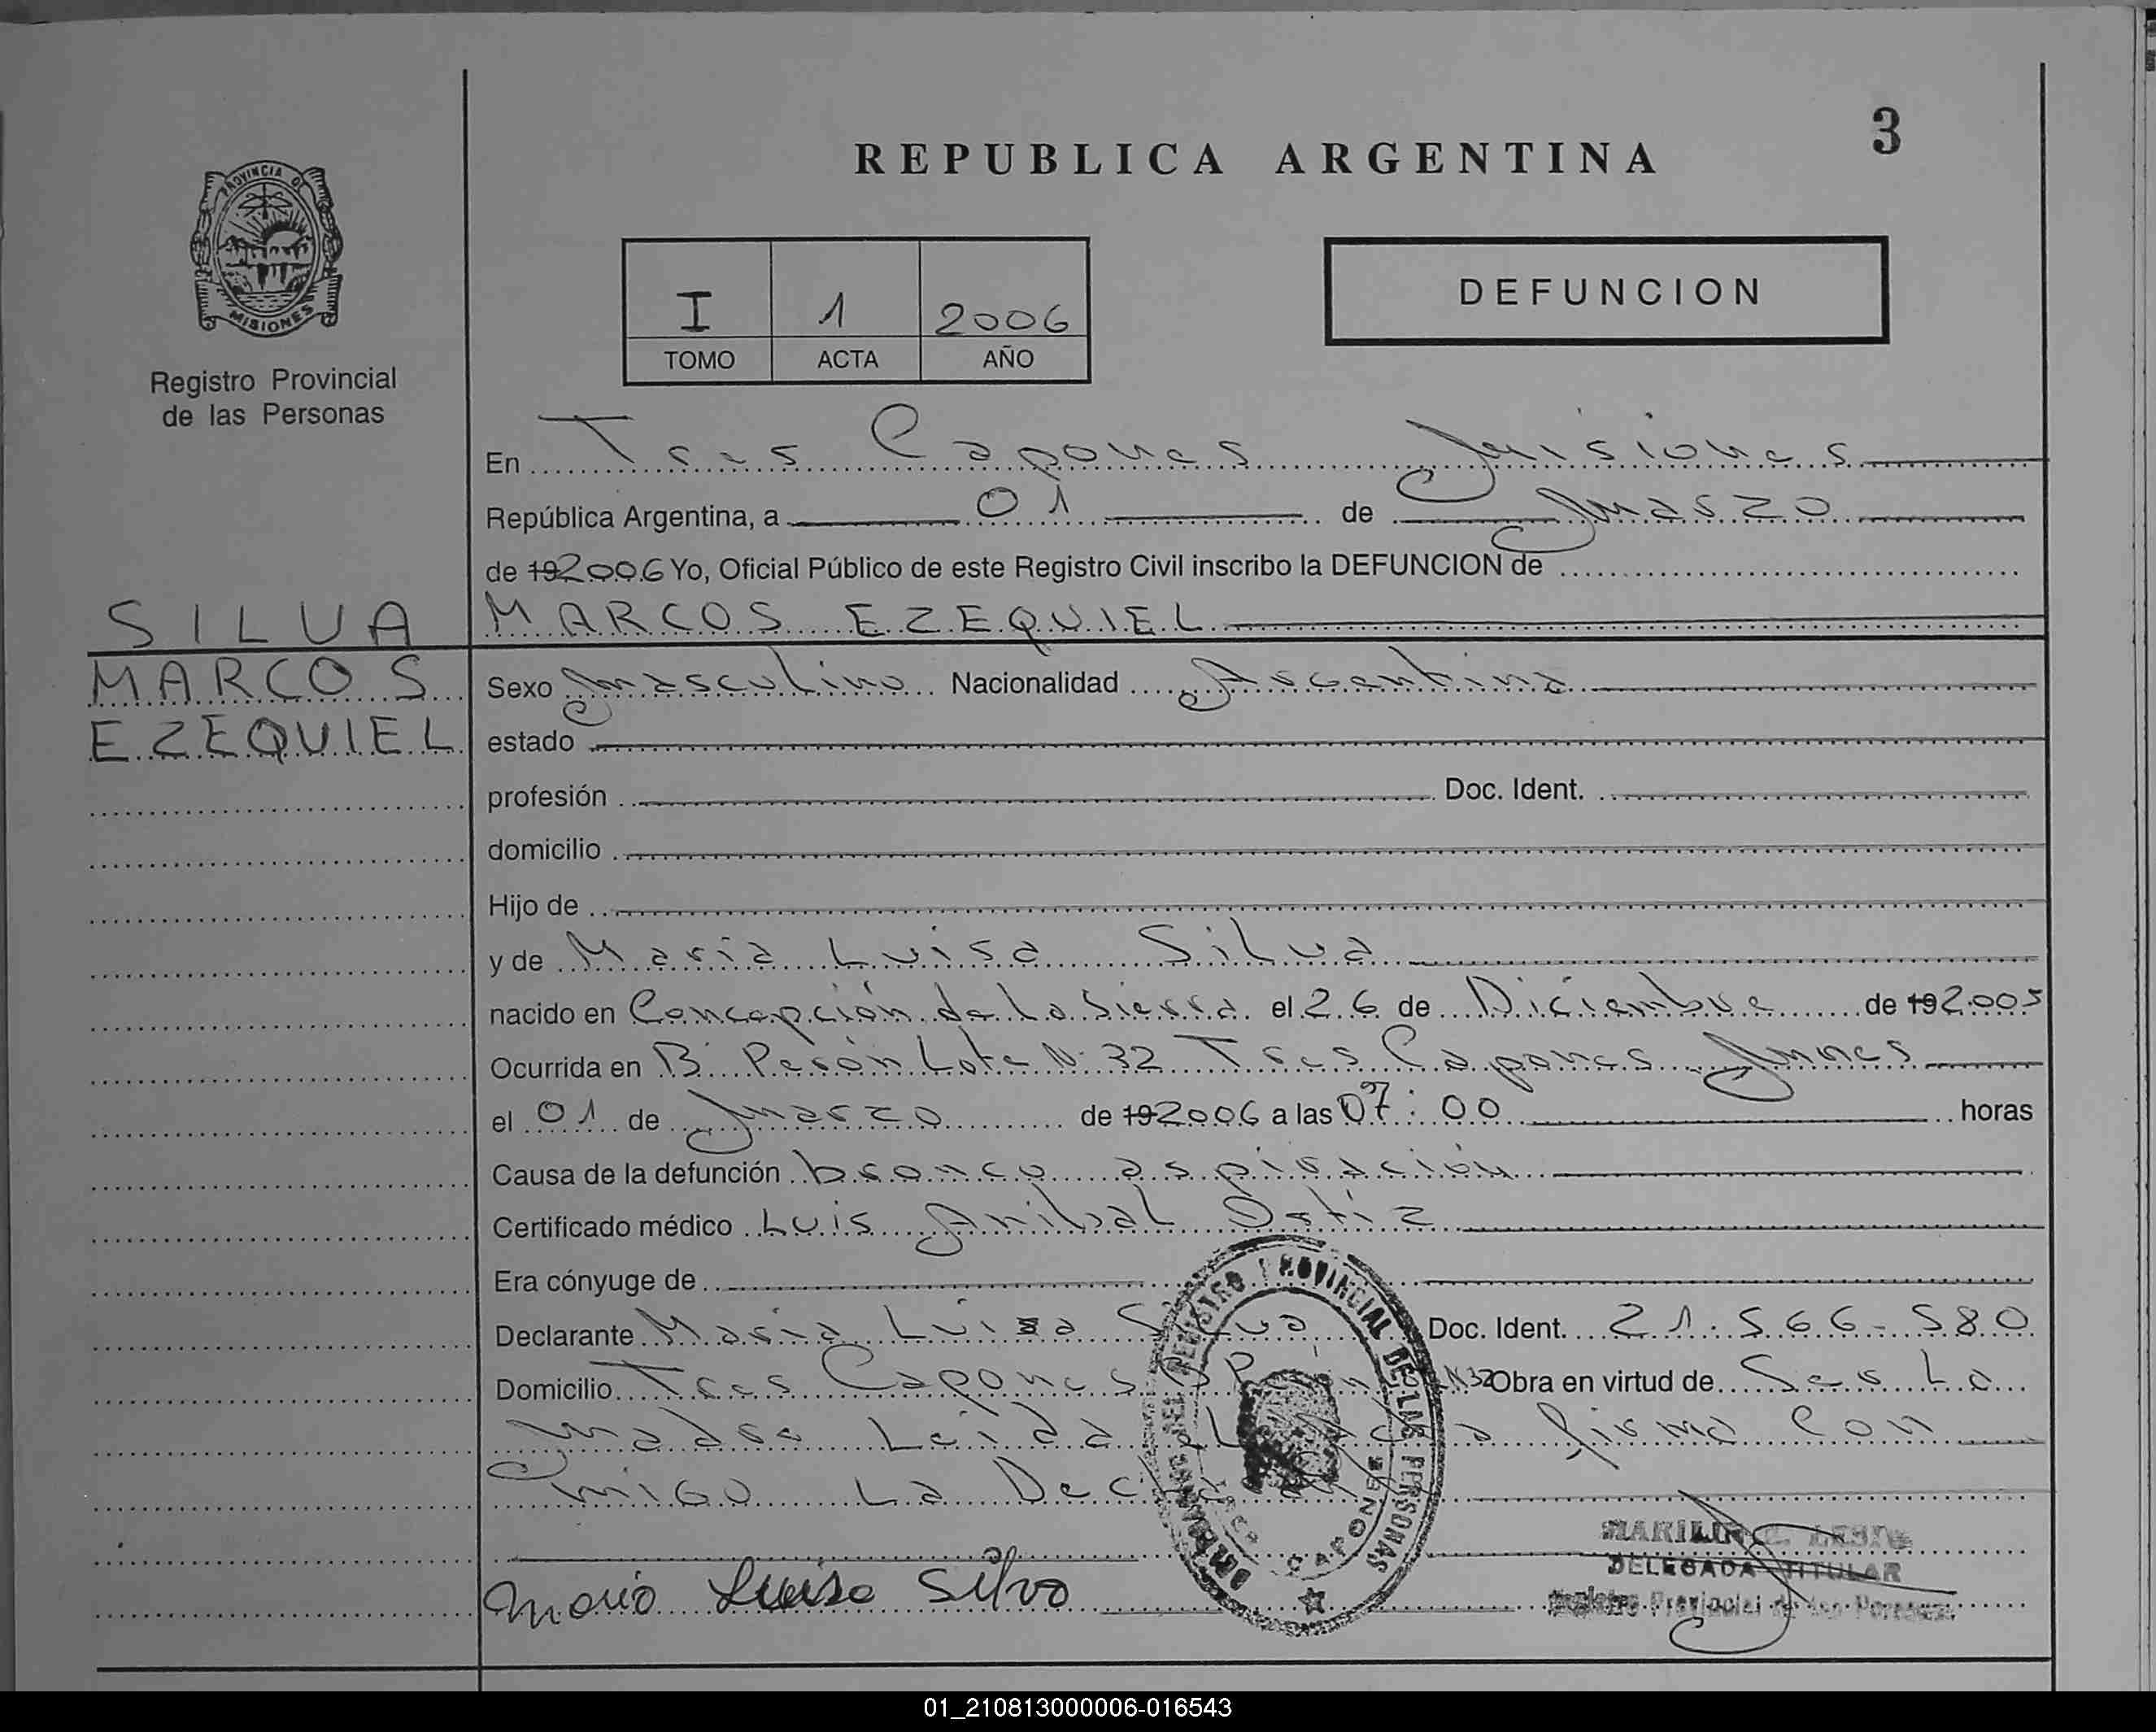 3
REPUBLICA ARGENTINA
PROVINCIA D
MISIONES
Registro Provincial
de las Personas
I 1 2006
TOMO ACTA AÑO
DEFUNCION
En Tres Capones Misiones
República Argentina, a 01 de Marzo
de 192006 Yo, Oficial Público de este Registro Civil inscribo la DEFUNCION de
SILVA
MARCOS
EZEQUIEL
MARCOS EZEQUIEL
Sexo Masculino Nacionalidad Argentina
estado
profesión Doc. Ident.
domicilio
Hijo de
y de Maria Luisa Silva
nacido en Concepción de la Sierra el 26 de Diciembre de 192005
Ocurrida en Bº Perón Lote Nº 32 Tres Capones Mnes
el 01 de Marzo de 192006 a las 07:00 horas
Causa de la defunción bronco aspiración
Certificado médico Luis Anibal Ortiz
Era cónyuge de
Declarante Maria Luisa Silva Doc. Ident. 21.566-580
Domicilio Tres Capones Bº P N32 Obra en virtud de Ser La
Madre Leida firma Con
migo La
REGISTRO PROVINCIAL DE LAS PERSONAS
CAPONES
Maria Luisa Silva
DELEGADA TITULAR
Registro Provincial de las Personas
01_210813000006-016543